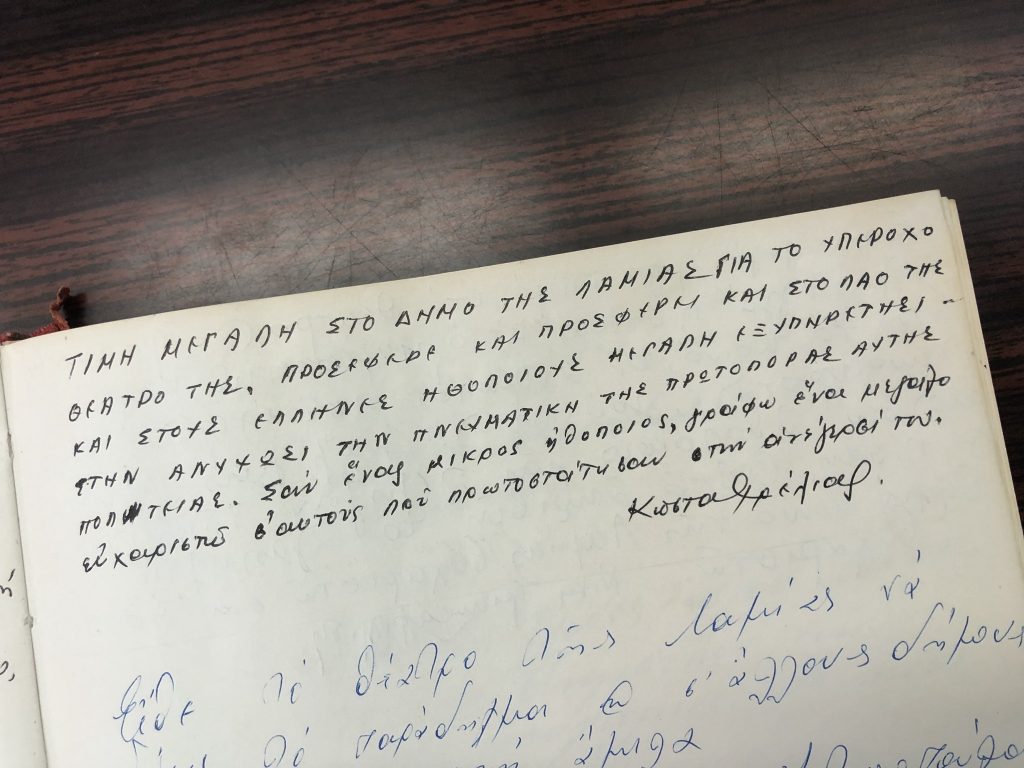 ΤΙΜΗ ΜΕΓΑΛΗ ΣΤΟ ΔΗΜΟ ΤΗΣ ΛΑΜΙΑΣ ΓΙΑ ΤΟ ΥΠΕΡΟΧΟ
ΘΕΑΤΡΟ ΤΗΣ. ΠΡΟΣΕΦΕΡΕ ΚΑΙ ΠΡΟΣΦΕΡΕΙ ΚΑΙ ΣΤΟ ΛΑΟ ΤΗΣ
ΚΑΙ ΣΤΟΥΣ ΕΛΛΗΝΕΣ ΗΘΟΠΟΙΟΥΣ ΜΕΓΑΛΗ ΕΞΥΠΗΡΕΤΗΣΙ -
ΣΤΗΝ ΑΝΥΨΩΣΙ ΤΗΝ ΠΝΕΥΜΑΤΙΚΗ ΤΗΣ ΠΡΩΤΟΠΟΡΑΣ ΑΥΤΗΣ
ΠΟΛΙΤΕΙΑΣ. Σαν ἕνας μικρος ἠθοποιος, γράφω ἕνα μεγαλο
εὐχαριστῶ σ' αυτοὺς ποῦ πρωτοστάτησαν στὴν ἀνέγερσί του.
Κωστα
τὸ θέατρο τῆς Λαμίας νὰ
τὸ παράδειγμα σ' ἄλλους δήμους
ἅμιλλα